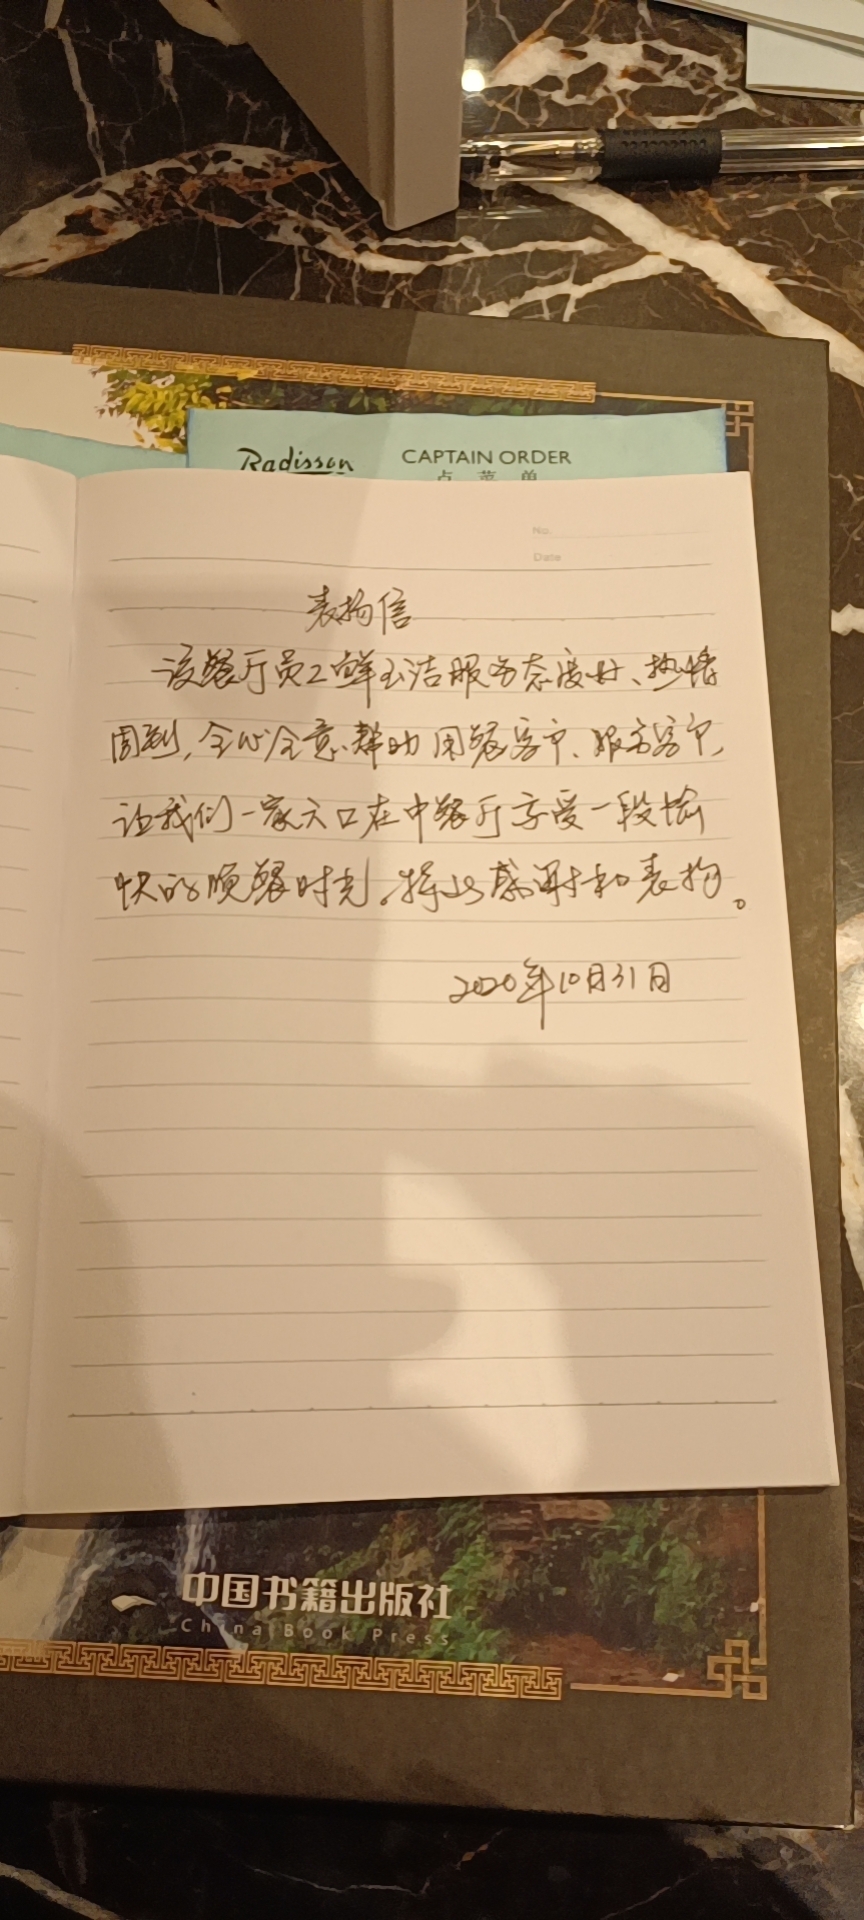 Radisson
CAPTAIN ORDER
点 菜 单
No.
Date
表扬信
该餐厅员工鲜玉洁服务态度好、热情
周到,全心全意帮助用餐客户、服务客户,
让我们一家六口在中餐厅享受一段愉
快的晚餐时光。特此感谢和表扬。
2020年10月31日
中国书籍出版社
China Book Press